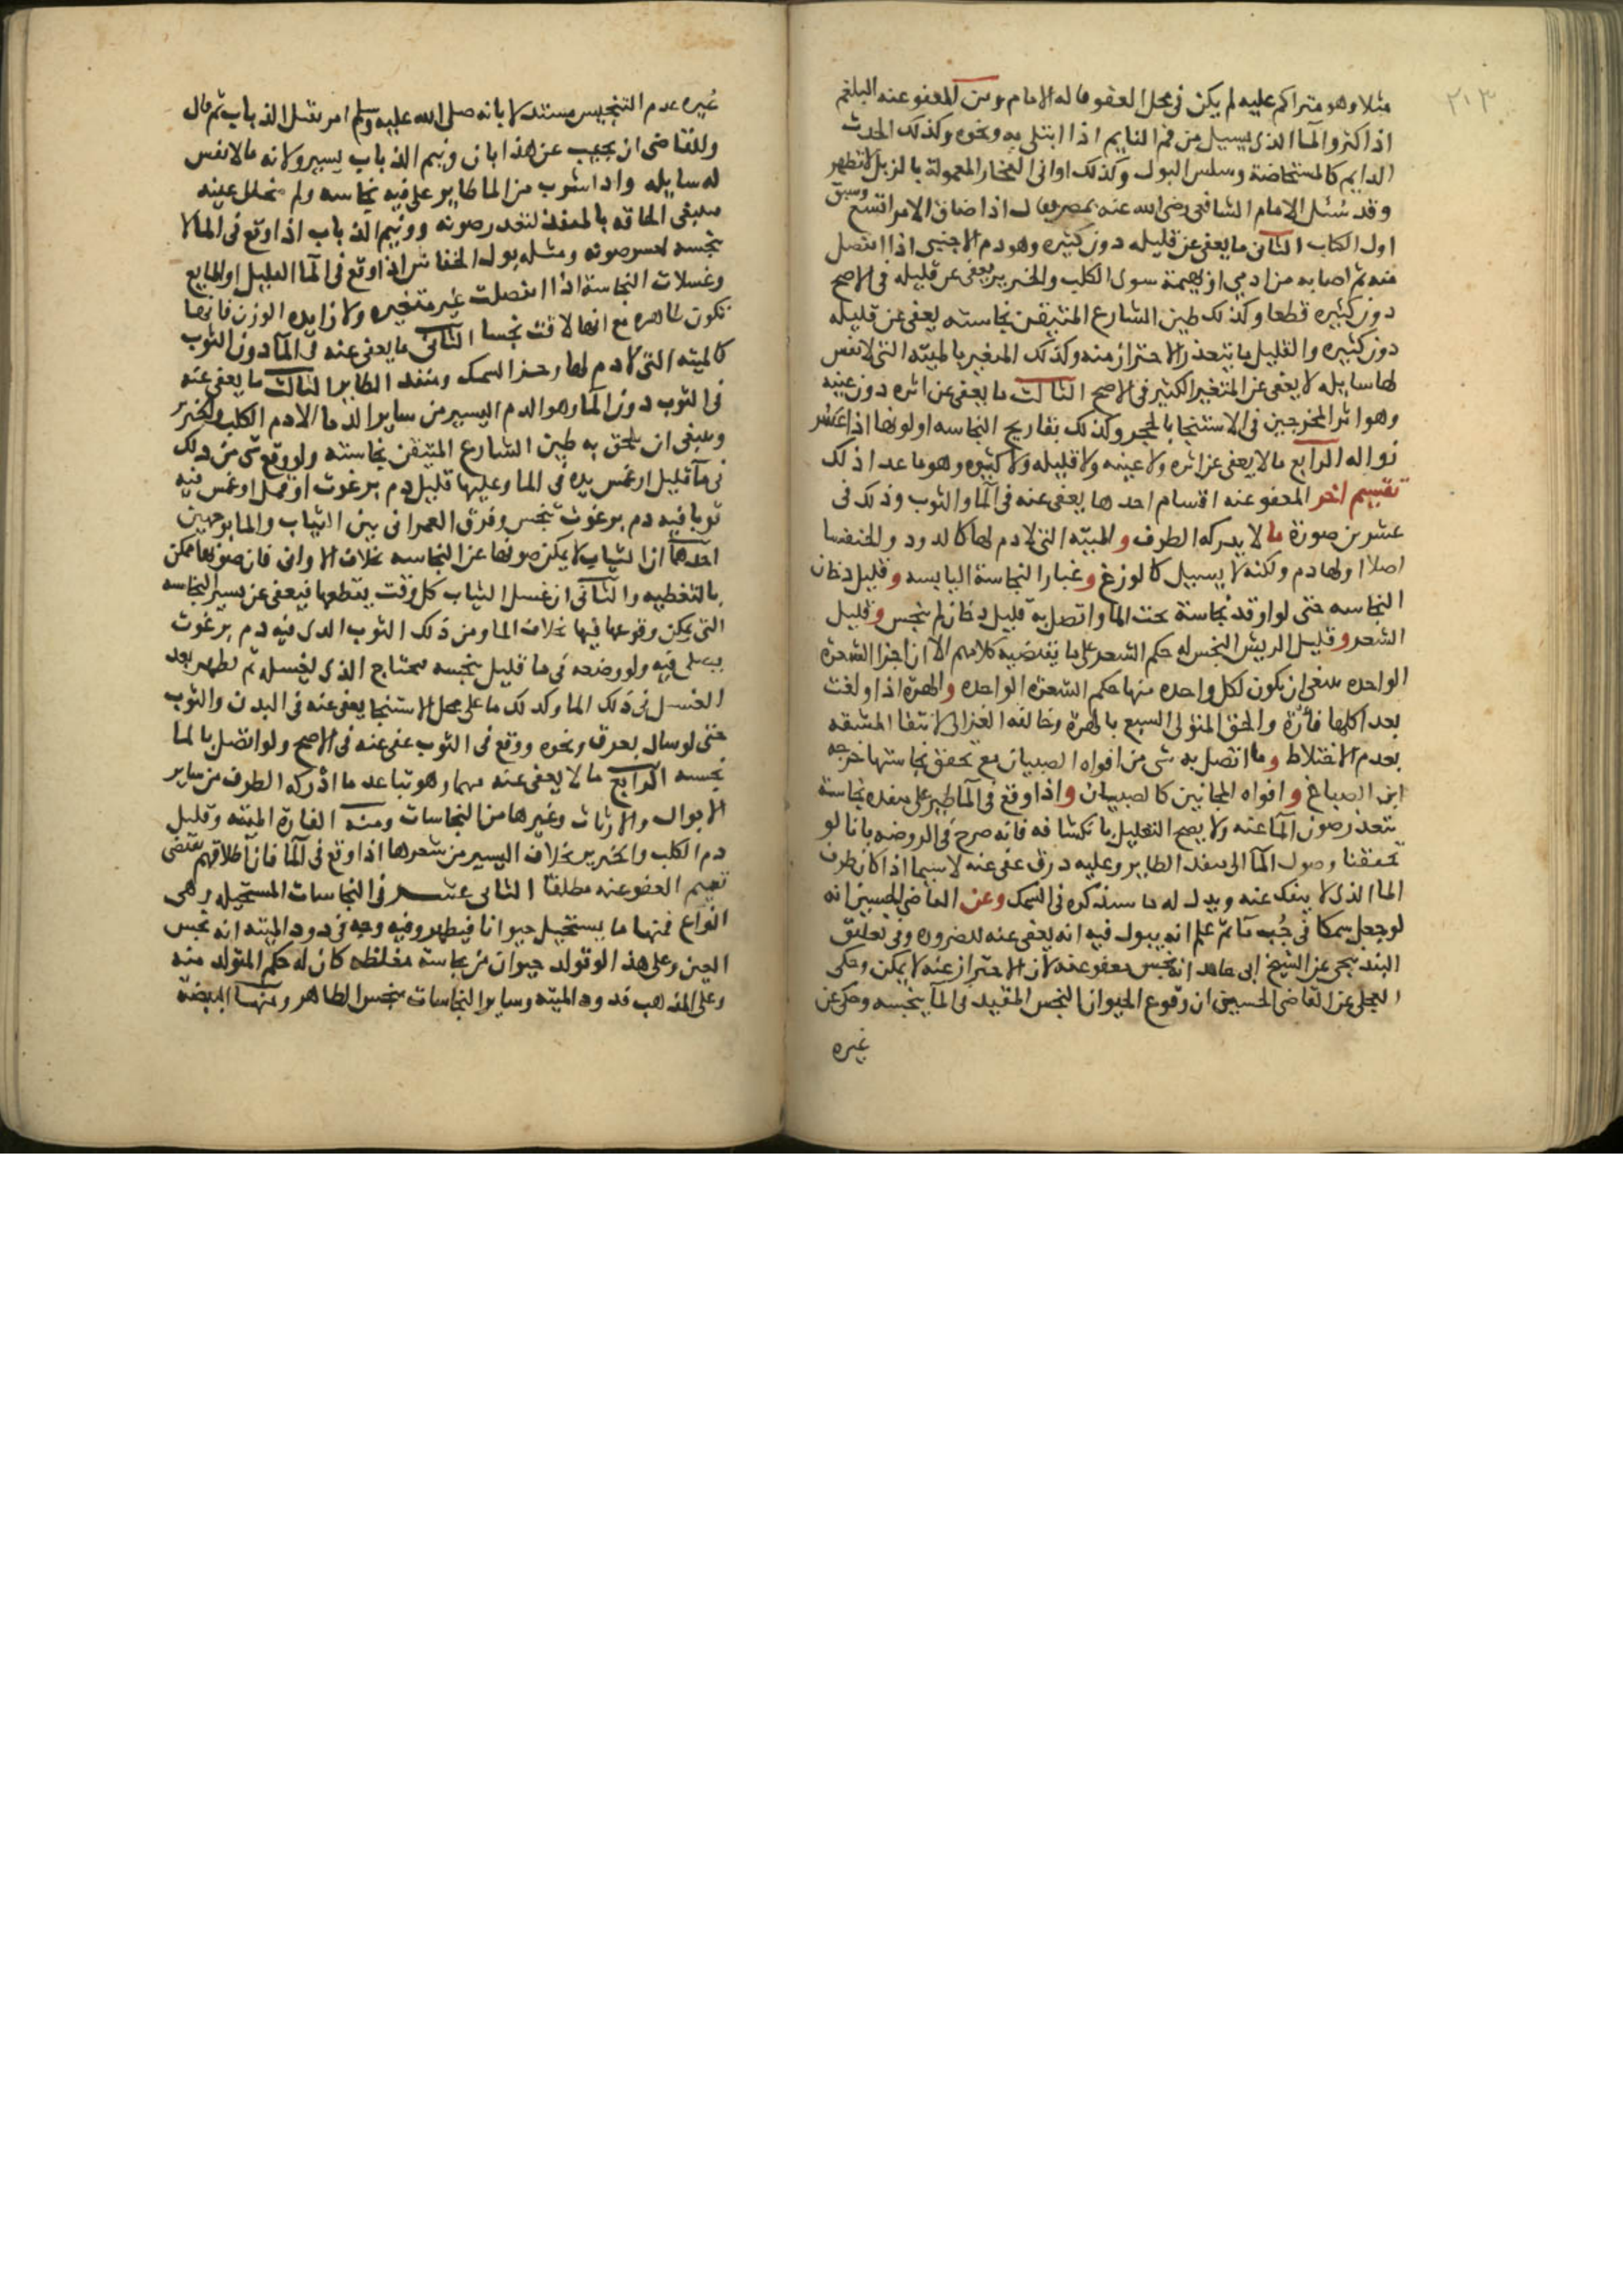 ٢١٣
مثلا وهو متراكم عليه لم يكن في محل العفو قاله الامام ومن المعفو عنه البلغم
اذا كثر والما الذي يسيل من فم النايم اذا ابتلى به ونحوه وكذلك الحدث
الدايم كالمستحاضة وسلس البول وكذلك اواني الفخار المعمولة بالزبل لا تطهر
وقد سُئل الامام الشافعي رضي الله عنه بمصر فقال اذا ضاق الامر اتسع وسبق
اول الكتاب الثاني ما يعفى عن قليله دون كثيره وهو دم الاجنبي اذا انفصل
منه ثم اصابه من ادمي او بهيمة سوى الكلب والخنزير يعفى عن قليله في الاصح
دون كثيره قطعا وكذلك طين الشارع المتيقن نجاسته يعفى عن قليله
دون كثيره والقليل ما يتعذر الاحتراز منه وكذلك المتغير بالميته التي لا نفس
لها سايله لا يعفى عن المتغير الكثير في الاصح الثالث ما يعفى عن اثره دون عينه
وهو اثر المخرجين في الاستنجا بالحجر وكذلك بقا ريح النجاسه او لونها اذا عسر
زواله الرابع ما لا يعفى عن اثره ولا عينه ولا قليله ولا كثيره وهو ما عدا ذلك
تقسيم اخر المعفو عنه اقسام احدها يعفى عنه في الما والثوب وذلك في
عشرين صورة ما لا يدركه الطرف والميته التي لا دم لها كالدود والخنفسا
اصلا او لها دم ولكنه لا يسيل كالوزغ وغبار النجاسة اليابسه وقليل دخان
النجاسه حتى لو اوقد نجاسة تحت الما واتصل به قليل دخان لم ينجس وقليل
الشعر وقليل الريش النجس له حكم الشعر على ما يقتضيه كلامهم الا ان اجزا الشعرة
الواحده ينبغي ان يكون لكل واحده منها حكم الشعرة الواحده والهرة اذا ولغت
بعد اكلها فأرة والحق المتولي السبع بالهرة وخالفه الغزالي لانتفا المشقه
بعدم الاختلاط وما اتصل به شي من افواه الصبيان مع تحقق نجاستها خرجه
ابن الصباغ وافواه المجانين كالصبيان واذا وقع في الما طير على منفذه نجاسة
يتعذر صون الما عنه ولا يصح التعليل بانكشافه فانه صرح في الروضه بانا لو
تحققنا وصول الما الى منفذ الطاير وعليه ذرق عفي عنه لا سيما اذا كان طرف
الما الذي لا ينفك عنه ويدل له ما سنذكره في السمك وعن القاضي الحسين انه
لو جعل سمكا في جُب ما ثم علم انه يبول فيه انه يعفى عنه للضروره وفي تعليق
البندنيجي عن الشيخ ابي حامد انه نجس معفو عنه لان الاحتراز عنه لا يمكن وحكى
العجلي عن القاضي الحسين ان وقوع الحيوان النجس المنفذ في الما ينجسه وحكى عن
غيره
غيره عدم التنجيس مستدلا بانه صلى الله عليه وسلم امر بمقل الذباب ثم قال
وللقاضي ان يجيب عن هذا بان ونيم الذباب يسير ولانه مما لا نفس
له سايله واذا شرب من الما طاير على فيه نجاسه ولم تتخلل عينه
ينبغي الحاقه بالمنفذ لتعذر صونه وونيم الذباب اذا وقع في الما لا
ينجسه لعسر صونه ومثله بول الخفاش اذا وقع في الما القليل او المايع
وغسلات النجاسة اذا انفصلت غير متغيره ولا زايده الوزن فانها
تكون طاهره مع انها لاقت نجسا الثاني ما يعفى عنه في الما دون الثوب
كالميته التي لا دم لها وخرء السمك ومنفذ الطاير الثالث ما يعفى عنه
في الثوب دون الما وهو الدم اليسير من ساير الدما الا دم الكلب والخنزير
وينبغي ان يلحق به طين الشارع المتيقن نجاسته ولو وقع شي من ذلك
في ما قليل او غمس يده في الما وعليها قليل دم برغوث او قمل او غمس فيه
ثوبا فيه دم برغوث تنجس وفرق العمراني بين الثياب والما بوجهين
احدهما ان الثياب لا يمكن صونها عن النجاسه بخلاف الاواني فان صونها ممكن
بالتغطيه والثاني ان غسل الثياب كل وقت يقطعها فيعفى عن يسير النجاسه
التي يمكن وقوعها فيها بخلاف الما ومن ذلك الثوب الذي فيه دم برغوث
يصلى فيه ولو وضعه في ما قليل ينجسه فيحتاج الذي يغسله ثم تطهر بعد
الغسل في ذلك الما وكذلك ما على محل الاستنجا يعفى عنه في البدن والثوب
حتى لو سال بعرق ونحوه ووقع في الثوب عفي عنه في الاصح ولو اتصل بالما
نجسه الرابع ما لا يعفى عنه فيهما وهو ما عدا ما ادركه الطرف من ساير
الابوال والارواث وغيرها من النجاسات ومنه الفارة الميته وقليل
دم الكلب والخنزير بخلاف اليسير من شعرها اذا وقع في الما فان اطلاقهم يقتضي
تعميم العفو عنه مطلقا الثاني عشر في النجاسات المستحيله وهي
انواع فمنها ما يستحيل حيوانا فيطهر وفيه وجه في دود الميته انه نجس
العين وعلى هذا لو تولد حيوان من نجاسة مغلظه كان له حكم المتولد منه
وعلى المذهب فدود الميته وساير النجاسات ينجس الطاهر ومنها البيضة